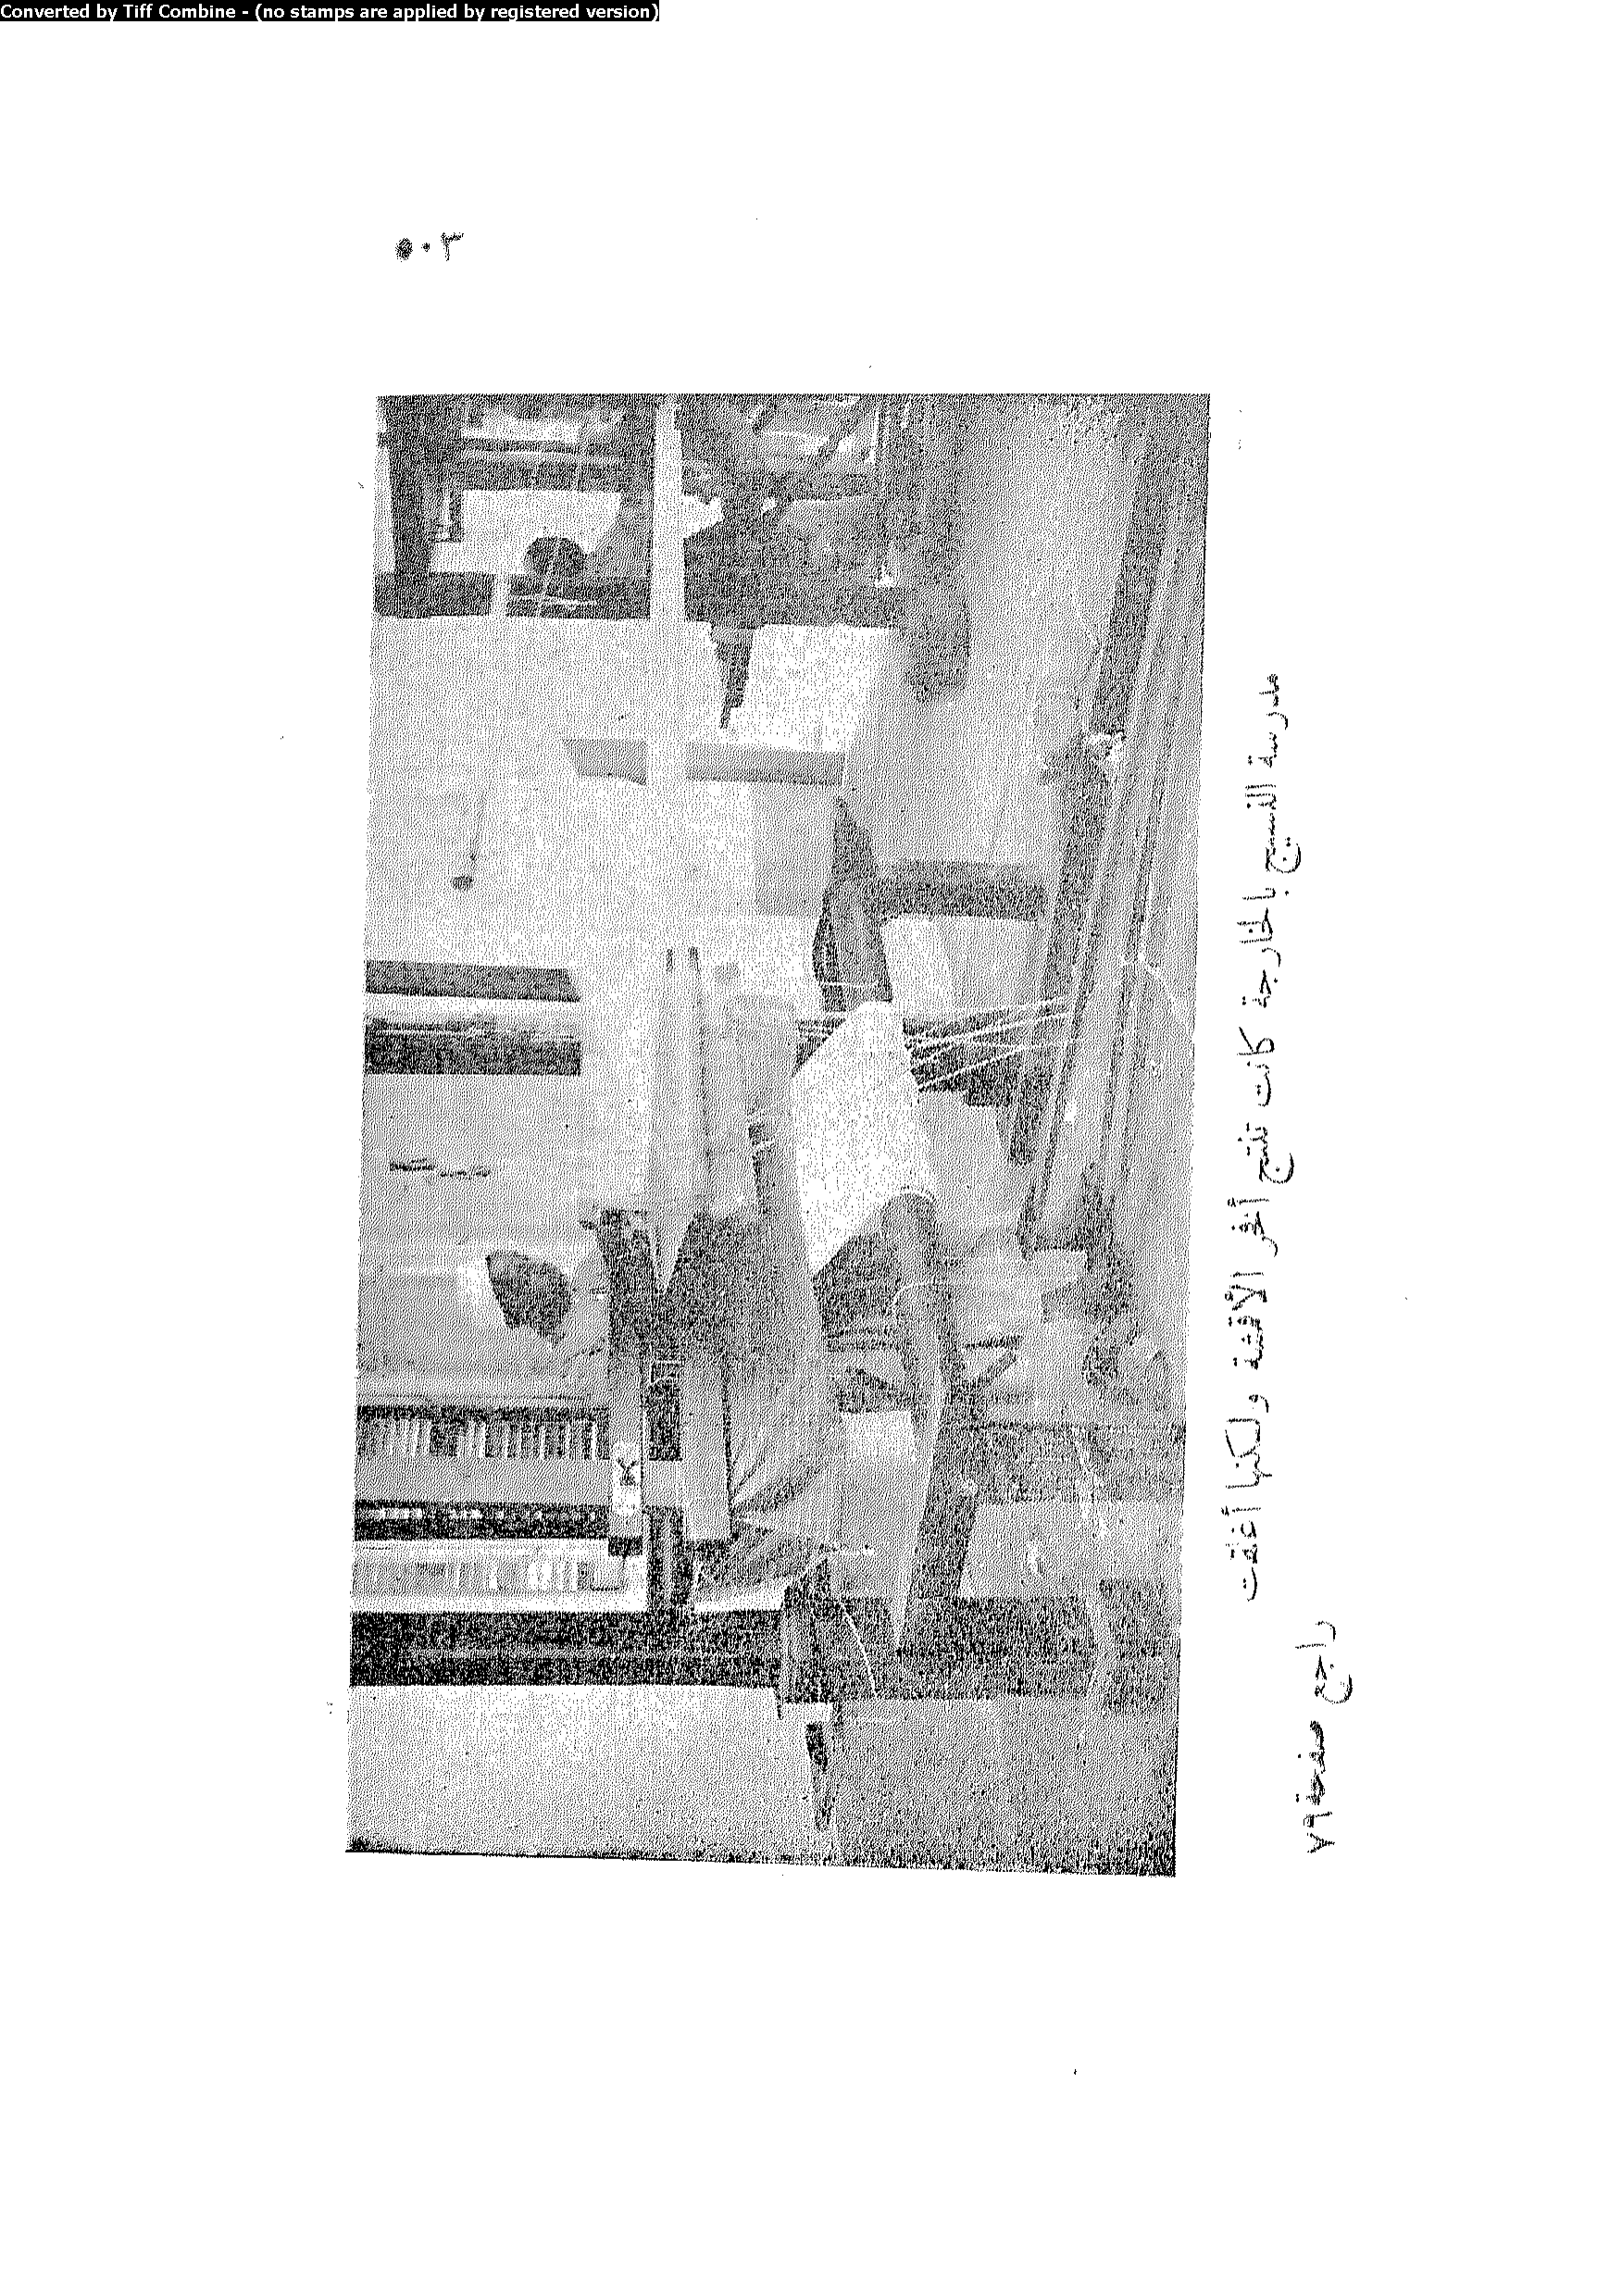 Converted by Tiff Combine - (no stamps are applied by registered version)
٥٠٣
مدرسة النسيج بالخارجة كانت تنتج أفخر الأقمشة ولكنها أغلقت
راجع صفحة ٧٩